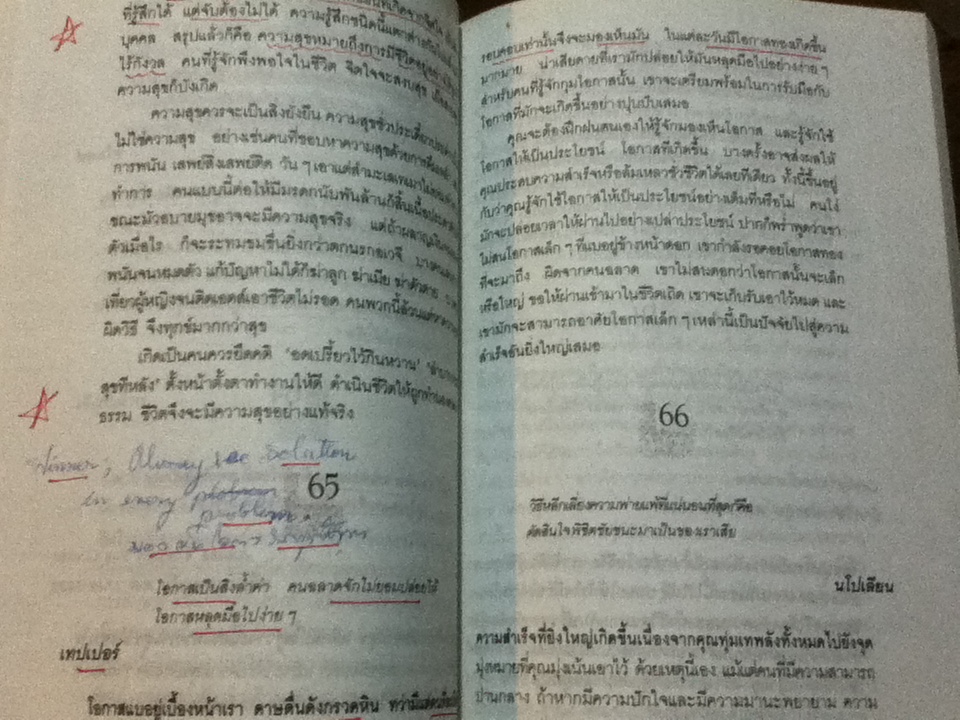 ที่รู้สึกได้ แต่จับต้องไม่ได้ ความรู้สึกชนิดนี้แตกต่างกัน
บุคคล สรุปแล้วก็คือ ความสุขหมายถึงการมีชีวิตอยู่อย่าง
ไร้กังวล คนที่รู้จักพึงพอใจในชีวิต จิตใจจะสงบสุข
ความสุขก็บังเกิด
ความสุขควรจะเป็นสิ่งยั่งยืน ความสุขชั่วประเดี๋ยว
ไม่ใช่ความสุข อย่างเช่นคนที่ชอบหาความสุขด้วยการ
การพนัน เสพย์สิ่งเสพย์ติด วัน ๆ เอาแต่สำมะเลเทเมาไม่
ทำการ คนแบบนี้ต่อให้มีมรดกนับพันล้านก็สิ้นเนื้อประดาตัว
ขณะมัวอบายมุขอาจจะมีความสุขจริง แต่ถ้าผลาญเงิน
ตัวเมื่อไร ก็จะระทมขมขื่นยิ่งกว่าตกนรกอเวจี บางคน
พนันจนหมดตัว แก้ปัญหาไม่ได้ก็ฆ่าลูก ฆ่าเมีย ฆ่าตัวตาย
เที่ยวผู้หญิงจนติดเอดส์เอาชีวิตไม่รอด คนพวกนี้ล้วนแต่
ผิดวิธี จึงทุกข์มากกว่าสุข
เกิดเป็นคนควรยึดคติ 'อดเปรี้ยวไว้กินหวาน'
สุขทีหลัง' ตั้งหน้าตั้งตาทำงานให้ดี ดำเนินชีวิตให้ถูกทำนองคลอง
ธรรม ชีวิตจึงจะมีความสุขอย่างแท้จริง
Winner, Always see solution
in every
problem.
65
โอกาสเป็นสิ่งล้ำค่า คนฉลาดจักไม่ยอมปล่อยให้
โอกาสหลุดมือไปง่าย ๆ
เทปเปอร์
โอกาสแฝงอยู่เบื้องหน้าเรา ดาษดื่นดังกรวดหิน ทว่ามีแต่คน
รอบคอบเท่านั้นจึงจะมองเห็นมัน ในแต่ละวันมีโอกาสทองเกิดขึ้น
มากมาย น่าเสียดายที่เรามักปล่อยให้มันหลุดมือไปอย่างง่าย ๆ
สำหรับคนที่รู้จักกุมโอกาสนั้น เขาจะเตรียมพร้อมในการรับมือกับ
โอกาสที่มักจะเกิดขึ้นอย่างปุบปับเสมอ
คุณจะต้องฝึกฝนตนเองให้รู้จักมองเห็นโอกาส และรู้จักใช้
โอกาสให้เป็นประโยชน์ โอกาสที่เกิดขึ้น บางครั้งอาจส่งผลให้
คุณประสบความสำเร็จหรือล้มเหลวชั่วชีวิตได้เลยทีเดียว ทั้งนี้ขึ้นอยู่
กับว่าคุณรู้จักใช้โอกาสให้เป็นประโยชน์อย่างเต็มที่หรือไม่ คนโง่
มักจะปล่อยเวลาให้ผ่านไปอย่างเปล่าประโยชน์ ปากก็พร่ำพูดว่าเขา
ไม่สนโอกาสเล็ก ๆ ที่แบอยู่ข้างหน้าดอก เขากำลังรอคอยโอกาสทอง
ที่จะมาถึง ผิดจากคนฉลาด เขาไม่สนดอกว่าโอกาสนั้นจะเล็ก
หรือใหญ่ ขอให้ผ่านเข้ามาในชีวิตเถิด เขาจะเก็บรับเอาไว้หมด และ
เขามักจะสามารถอาศัยโอกาสเล็ก ๆ เหล่านี้เป็นปัจจัยไปสู่ความ
สำเร็จอันยิ่งใหญ่เสมอ
66
วิธีหลีกเลี่ยงความพ่ายแพ้ที่แน่นอนที่สุดก็คือ
ตัดสินใจพิชิตชัยชนะมาเป็นของเราเสีย
นโปเลียน
ความสำเร็จที่ยิ่งใหญ่เกิดขึ้นเนื่องจากคุณทุ่มเทพลังทั้งหมดไปยังจุด
มุ่งหมายที่คุณมุ่งเน้นเอาไว้ ด้วยเหตุนี้เอง แม้แต่คนที่มีความสามารถ
ปานกลาง ถ้าหากมีความปักใจและมีความมานะพยายาม ความ